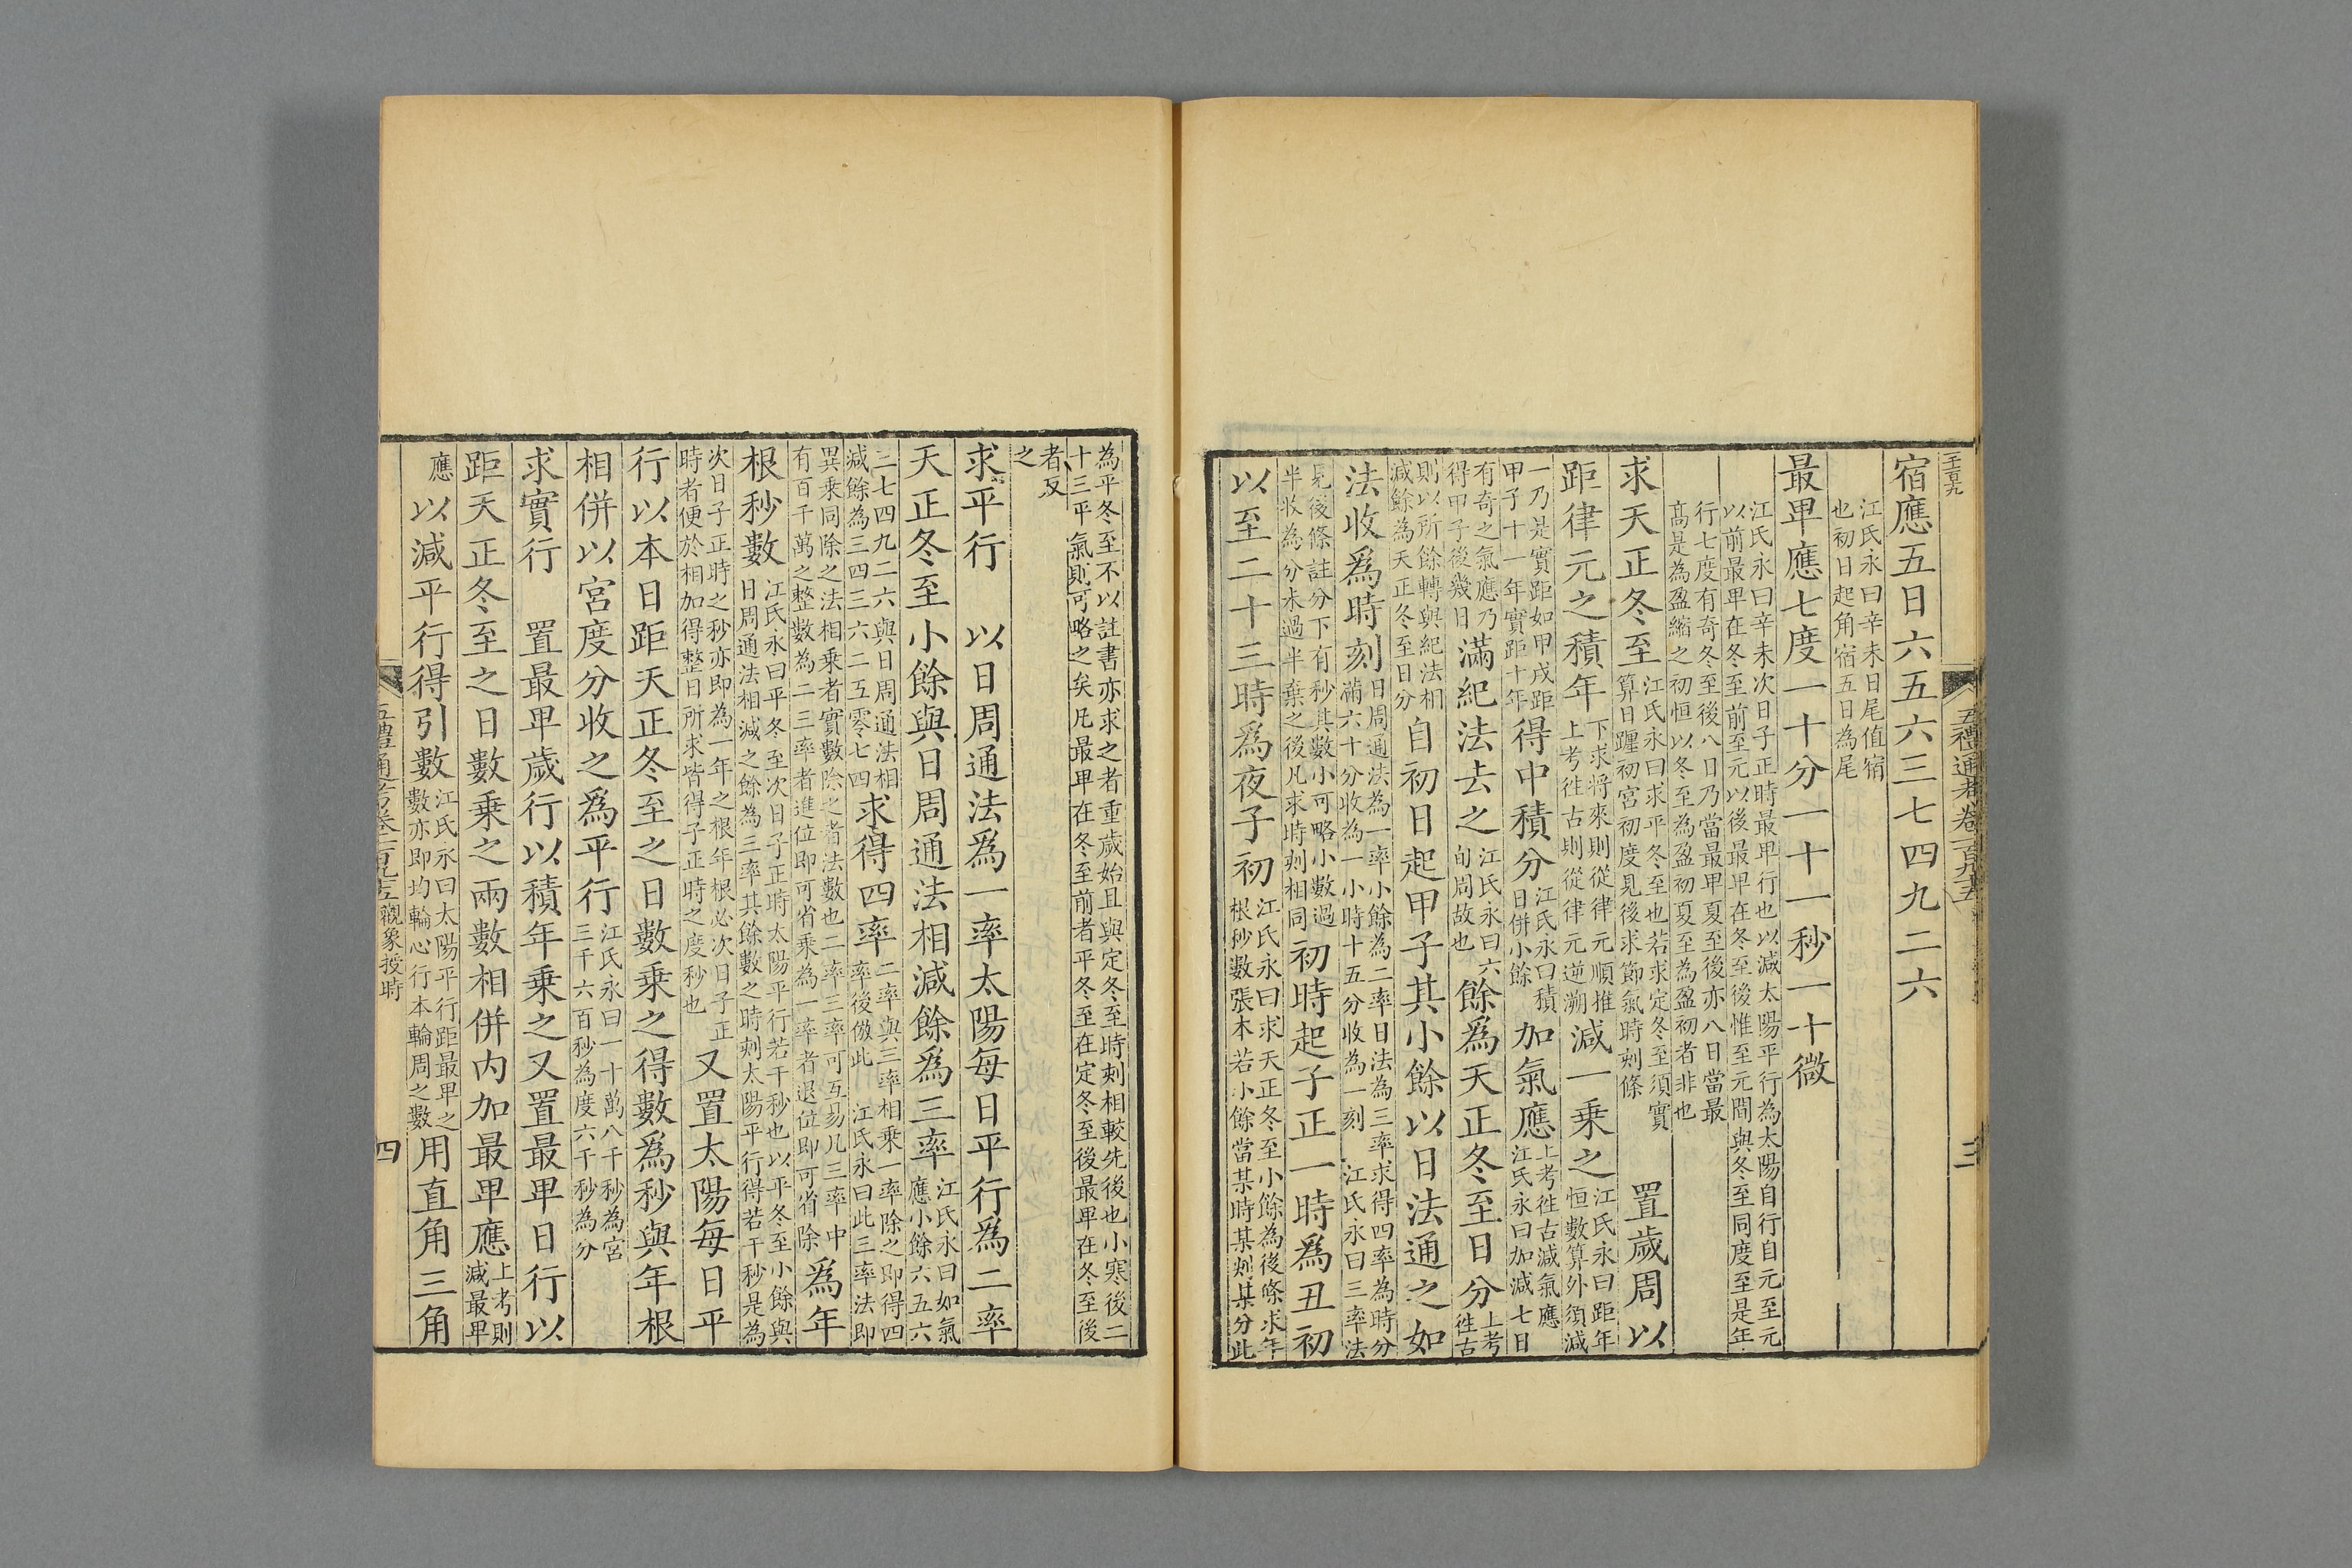 五禮通考卷一百九十五
三
宿應五日六五六三七四九二六
江氏永曰辛未日尾值宿
也初日起角宿五日為尾
最卑應七度一十分一十一秒一十微
江氏永曰辛未次日子正時最卑行也以減太陽平行為太陽自行自元至元
以前最卑在冬至前至元以後最卑在冬至後惟至元間與冬至同度至是年
行七度有奇冬至後八日乃當最卑夏至後亦八日當最
高是為盈縮之初恒以冬至為盈初夏至為盈初者非也
求天正冬至
江氏永曰求平冬至也若求定冬至須實
算日躔初宮初度見後求節氣時刻條
置歲周以
距律元之積年
下求將來則從律元順推
上考徃古則從律元逆溯
減一乗之
江氏永曰距年
恒數算外須減
一乃是實距如甲戌距
甲子十一年實距十年
得中積分
江氏永曰積
日併小餘
加氣應
上考徃古減氣應
江氏永曰加減七日
有奇之氣應乃
得甲子後幾日
滿紀法去之
江氏永曰六
旬周故也
餘爲天正冬至日分
上考
徃古
則以所餘轉與紀法相
減餘為天正冬至日分
自初日起甲子其小餘以日法通之如
法收爲時刻
日周通法為一率小餘為二率日法為三率求得四率為時分
滿六十分收為一小時十五分收為一刻　江氏永曰三率法
見後條註分下有秒其數小可略小數過
半收為分未過半棄之後凡求時刻相同
初時起子正一時爲丑初
以至二十三時爲夜子初
江氏永曰求天正冬至小餘為後條求年
根秒數張本若小餘當某時某刻某分此
為平冬至不以註書亦求之者重歲始且與定冬至時刻相較先後也小寒後二
十三平氣則可略之矣凡最卑在冬至前者平冬至在定冬至後最卑在冬至後
者反
之
求平行　以日周通法爲一率太陽每日平行爲二率
天正冬至小餘與日周通法相減餘爲三率
江氏永曰如氣
應小餘六五六
三七四九二六與日周通法相
減餘為三四三六二五零七四
求得四率
二率與三率相乗一率除之即得四
率後倣此　江氏永曰此三率法即
異乗同除之法相乗者實數除之者法數也二率三率可互易凡三率中
有百千萬之整數為二三率者進位即可省乗為一率者退位即可省除
爲年
根秒數
江氏永曰平冬至次日子正時太陽平行若干秒也以平冬至小餘與
日周通法相減之餘為三率其餘數之時刻太陽平行得若干秒是為
次日子正時之秒亦即為一年之根年根必次日子正
時者便於相加得整日所求皆得子正時之度秒也
又置太陽每日平
行以本日距天正冬至之日數乗之得數爲秒與年根
相併以宮度分收之爲平行
江氏永曰一十萬八千秒為宮
三千六百秒為度六十秒為分
求實行　置最卑歲行以積年乗之又置最卑日行以
距天正冬至之日數乗之兩數相併内加最卑應
上考則
減最卑
應
以減平行得引數
江氏永曰太陽平行距最卑之
數亦即均輪心行本輪周之數
用直角三角
五禮通考卷一百九十五觀象授時
四